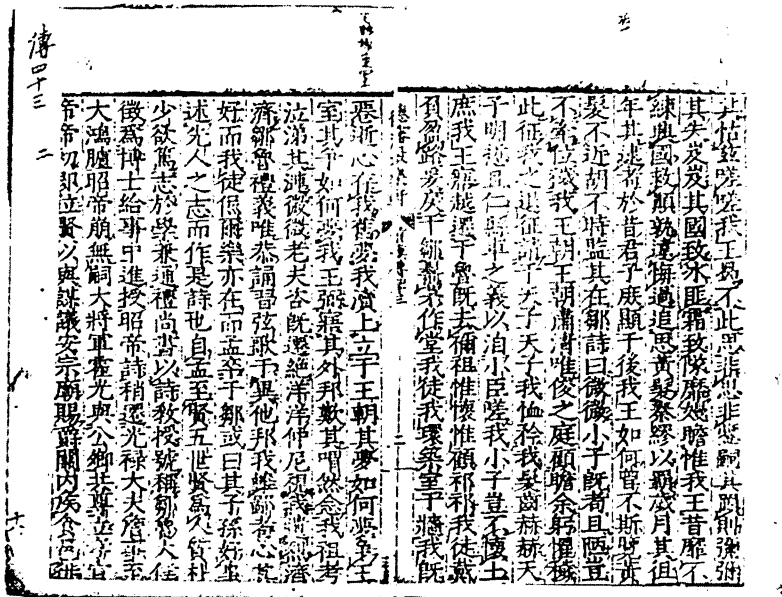 其怙茲嗟嗟我王曷不此思非思非鑒嗣其罔則彌彌
其失岌岌其國致冰匪霜致隊靡嫚瞻惟我王昔靡不
練興國救顛孰違悔過追思黃髮秦繆以霸歲月其徂
年其逮耇於昔君子庶顯于後我王如何曾不斯覽黃
髮不近胡不時監其在鄒詩曰微微小子既耇且陋豈
不牽位穢我王朝王朝肅清唯俊之庭顧瞻余躬懼穢
此征我之退征請于天子天子我恤矜我髮齒赫赫天
子明悊且仁縣車之義以洎小臣嗟我小子豈不懷土
庶我王寤越遷于魯既去禰祖惟懷惟顧祁祁我徒戴
負盈路爰戾于鄒鬋茅作堂我徒我環築室于牆我既
二
逝心存我舊夢我瀆上立于王朝其夢如何夢爭王
室其爭如何夢我王弼寤其外邦歎其喟然念我祖考
泣涕其漣微微老夫咨既遷絕洋洋仲尼視我遺烈濟
濟鄒魯禮義唯恭誦習弦歌于異他邦我雖鄙耇心其
好而我徒侃爾樂亦在而孟卒于鄒或曰其子孫好事
述先人之志而作是詩也自孟至賢五世賢為人質朴
少欲篤志於學兼通禮尚書以詩教授號稱鄒魯大儒
徵為博士給事中進授昭帝詩稍遷光祿大夫詹事至
大鴻臚昭帝崩無嗣大將軍霍光與公卿共尊立孝宣
帝帝初即位賢以與謀議安宗廟賜爵關內侯食邑徙
傳四十三 二